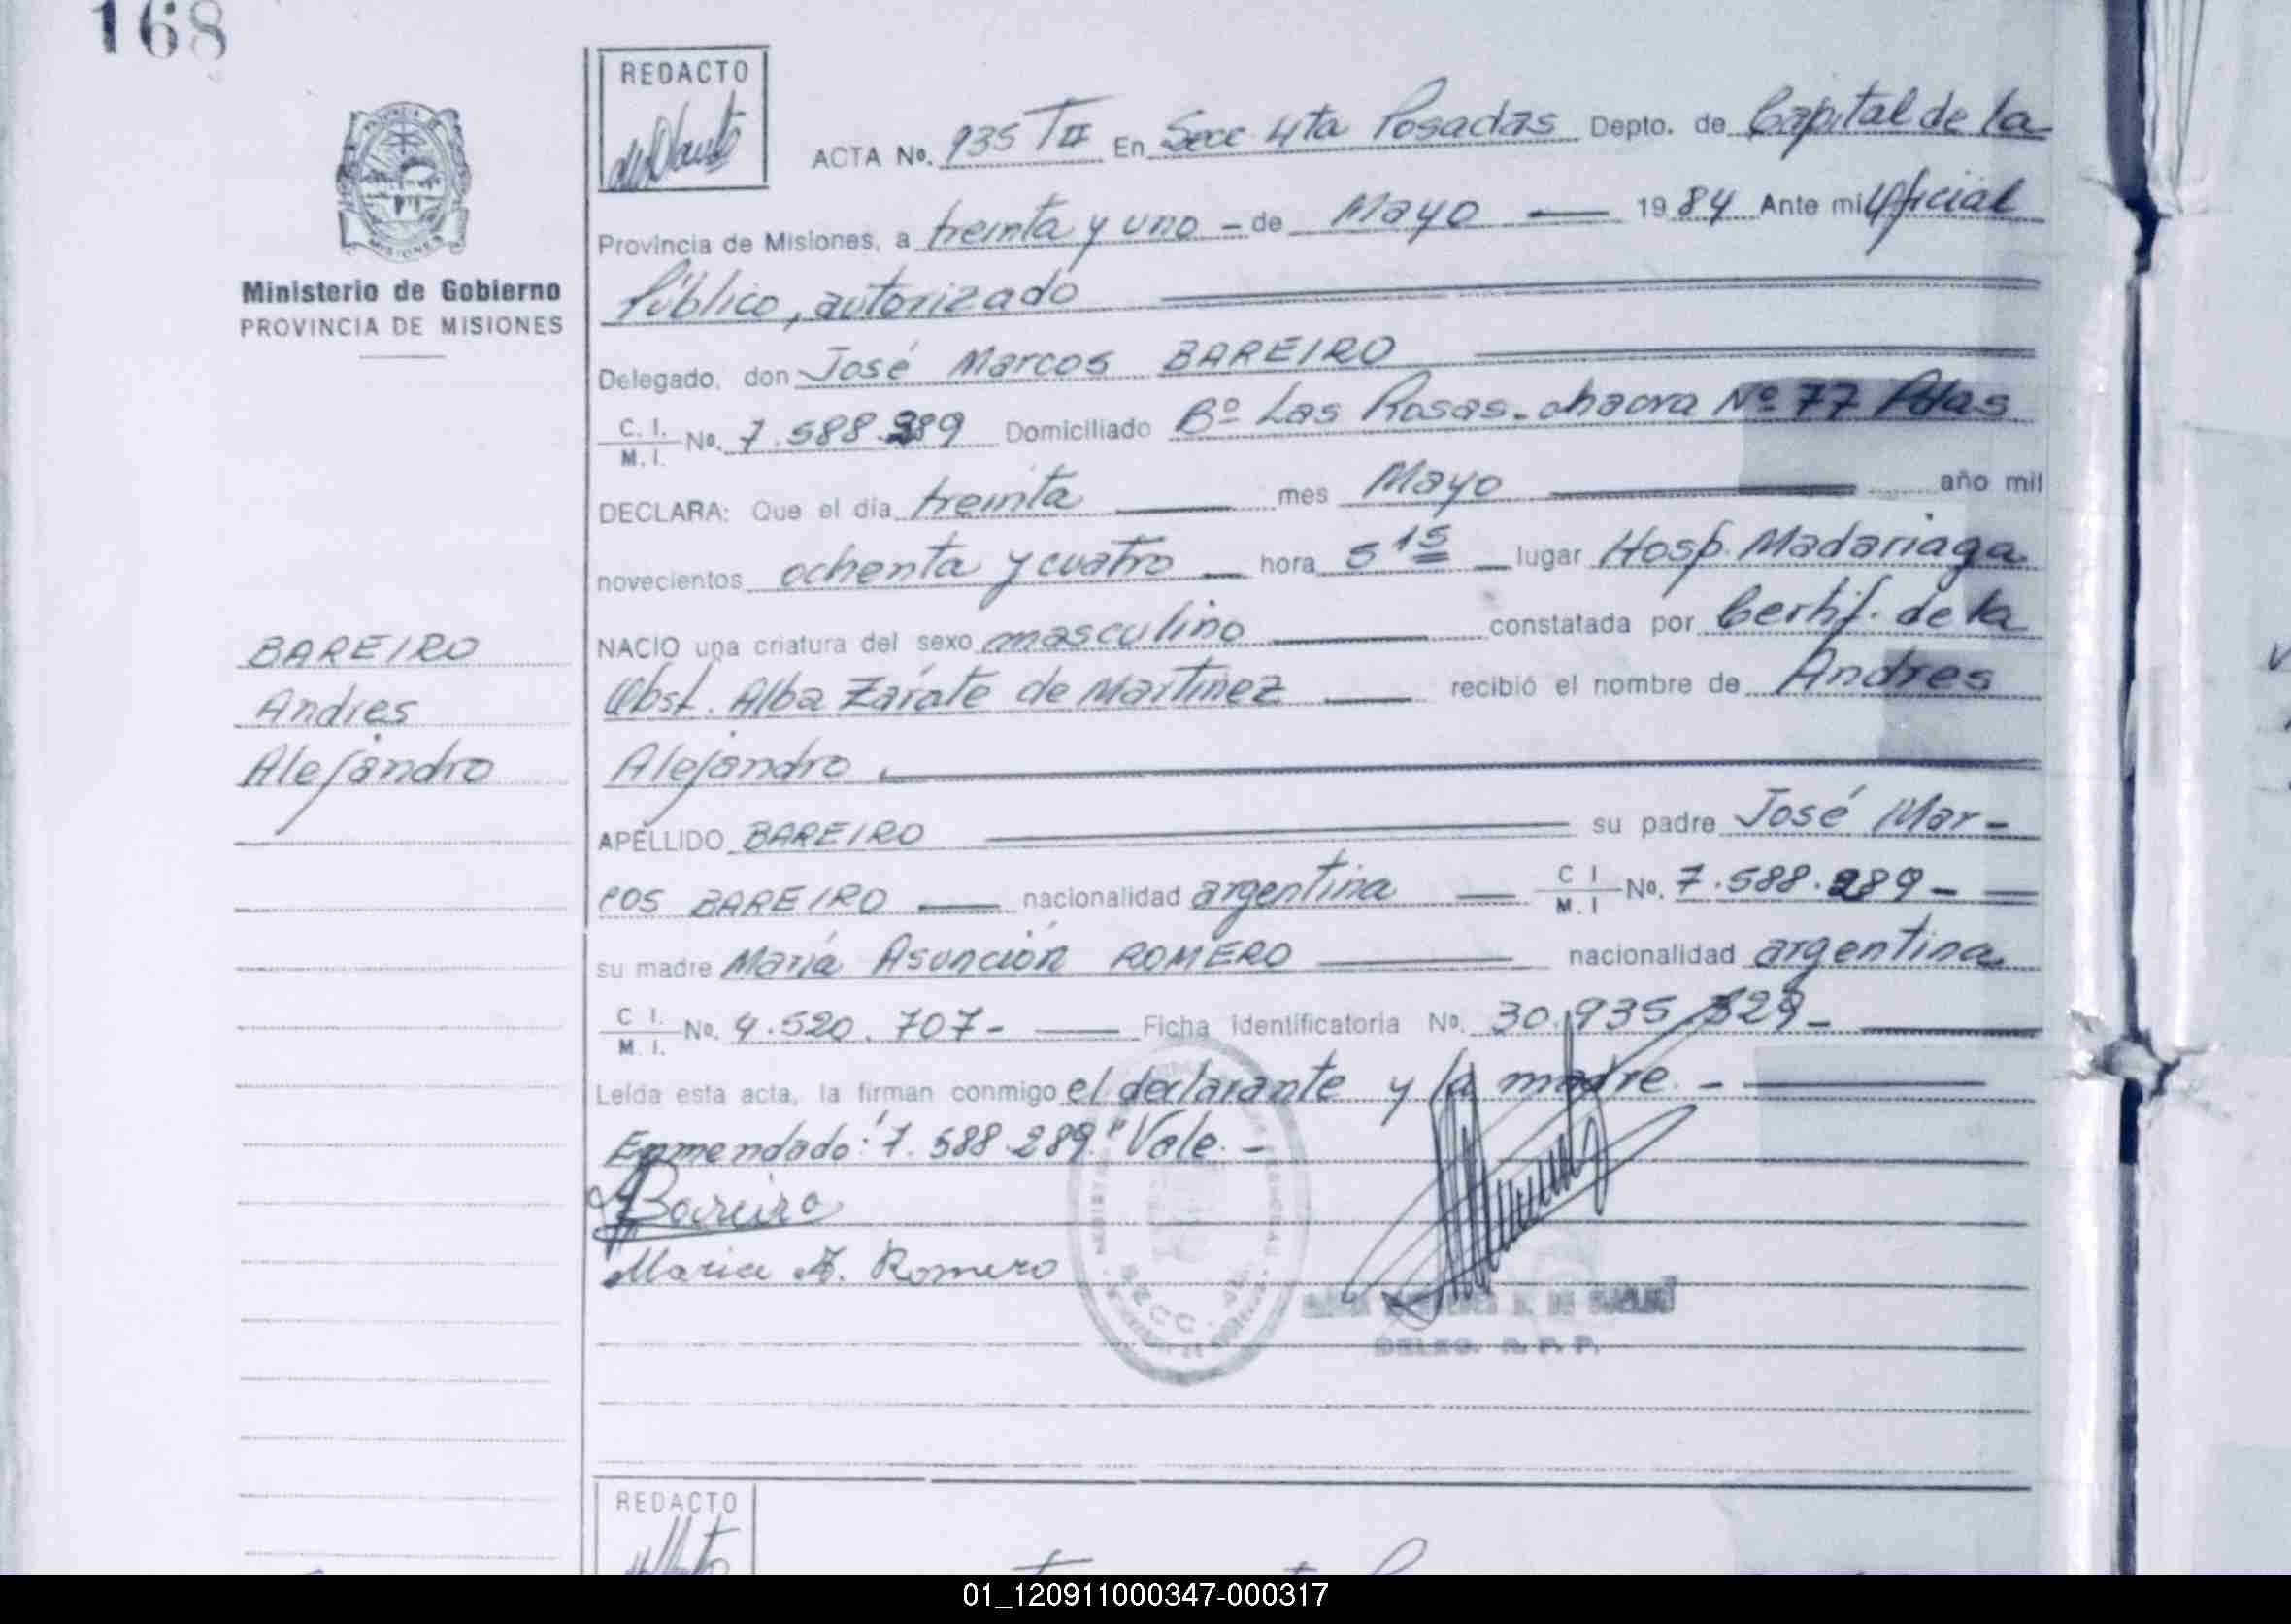 168
REDACTO
ACTA No. 935 TII En Secc 4ta Posadas Depto. de Capital de la
Provincia de Misiones, a treinta y uno - de Mayo — 1984 Ante mi Oficial
Público, autorizado
Ministerio de Gobierno
PROVINCIA DE MISIONES
Delegado, don José Marcos BAREIRO
C. I. M. I. No. 7.588.289 Domiciliado Bº Las Rosas. chacra Nº 77 Pdas
DECLARA: Que el día treinta — mes Mayo — año mil
novecientos ochenta y cuatro — hora 5 15 — lugar Hosp. Madariaga
NACIO una criatura del sexo masculino — constatada por Certif. de la
Obst. Alba Zárate de Martinez — recibió el nombre de Andres
Alejandro
BAREIRO
Andres
Alejandro
APELLIDO BAREIRO — su padre José Mar-
cos BAREIRO — nacionalidad argentina — C I M. I No. 7.588.289 -
su madre María Asunción ROMERO — nacionalidad argentina
C I. M. I. No. 4.520.707- — Ficha identificatoria No. 30.935.329 -
Leída esta acta, la firman conmigo el declarante y la madre. -
Enmendado: "7.588.289" Vale. -
Bareiro
Maria A. Romero
SECC.
DELEG. R. P. P.
REDACTO
01_120911000347-000317